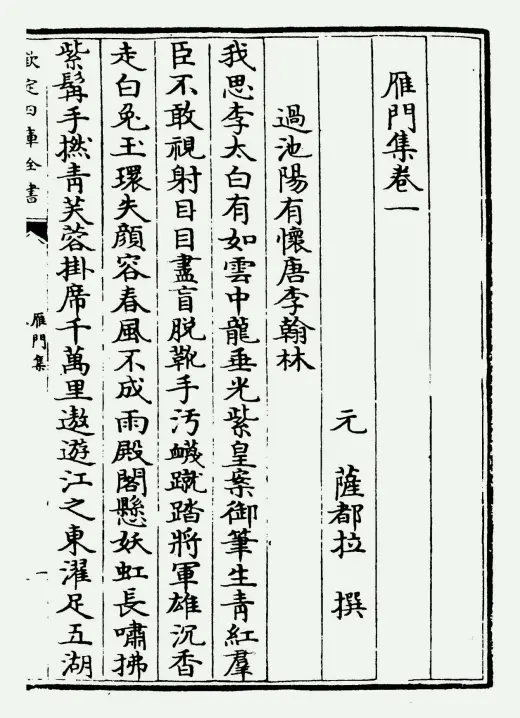 雁門集卷一
元 薩都拉 撰
過池陽有懷唐李翰林
我思李太白有如雲中龍垂光紫皇案御筆生青紅羣
臣不敢視射目目盡盲脱靴手汚衊蹴踏將軍雄沉香
走白兔玉環失顔容春風不成雨殿閣懸妖虹長嘯拂
紫髯手撚青芙蓉掛席千萬里遨遊江之東濯足五湖
欽定四庫全書
雁門集
一